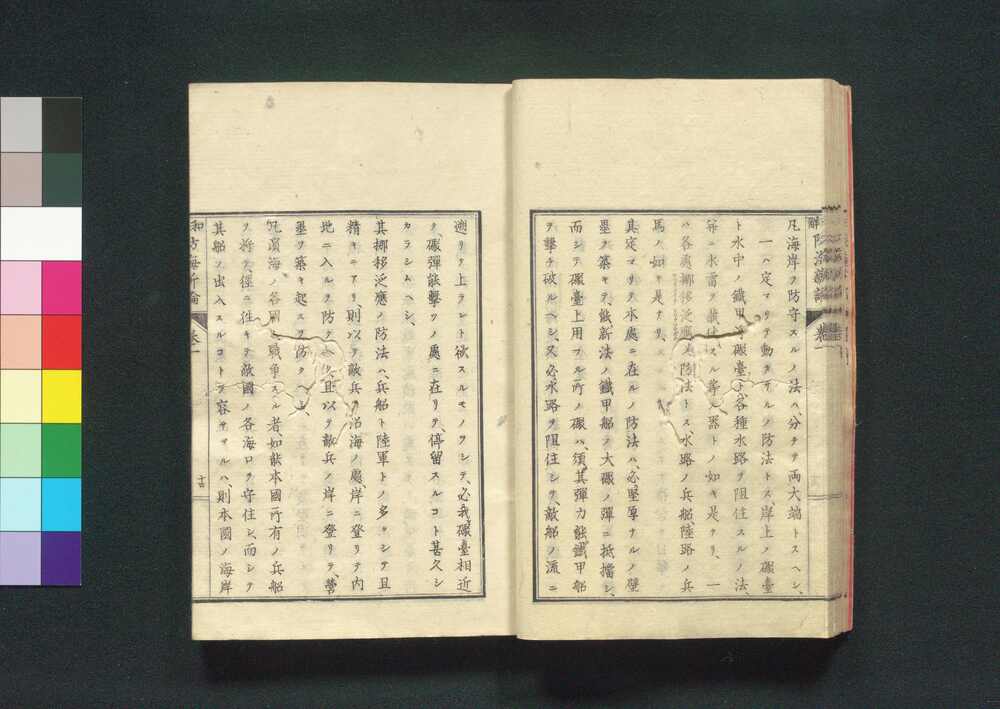 凡海岸ヲ防守スルノ法ハ、分チテ両大端トスヘシ、
一ハ定マリテ動カサルノ防法トス岸上ノ礟臺
ト水中ノ鐵甲礟臺ト各種水路ヲ阻住スルノ法、
第ニ水雷ヲ等ノ器トノ如キ是ナリ、一
ハ各處挪移泛應ノ防法トス、水路ノ兵船、陸路ノ兵
馬ノ如キ是ナリ、
其定マリテ本處ニ在ルノ防法ハ、必堅厚ナルノ壁
壘ヲ築キテ、能新法ノ鐵甲船ノ大礟ノ彈ニ抵擋シ、
而シテ礟臺上用フル所ノ礟ハ、須其彈力能鐵甲船
ヲ擊チ破ルヘシ、又必水路ヲ阻住シテ、敵船ノ流ニ
遡リテ上ラント欲スルモノヲシテ、必我礟臺相近
ク、礟彈能擊ツノ處ニ在リテ、停留スルコト甚久シ
カラシムヘシ、
其挪移泛應ノ防法ハ、兵船ト陸軍トノ多クシテ且
精キニアリ、則以テ敵兵ノ沿海ノ處、岸ニ登リテ内
地ニ入ルヲ防クヘク、且以テ敵兵ノ岸ニ登リテ、營
壘ヲ築キ起スヲ防クヘシ、
凡濱海ノ各國、戰爭スル者如能本國所有ノ兵船
ヲ將テ、徑ニ往キテ敵國ノ各海口ヲ守住シ、而シテ
其船ノ出入スルコトヲ容サヽルハ、則本國ノ海岸
巻一
十古